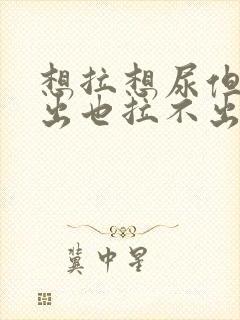 想拉想尿但
出也拉不出
冀中星